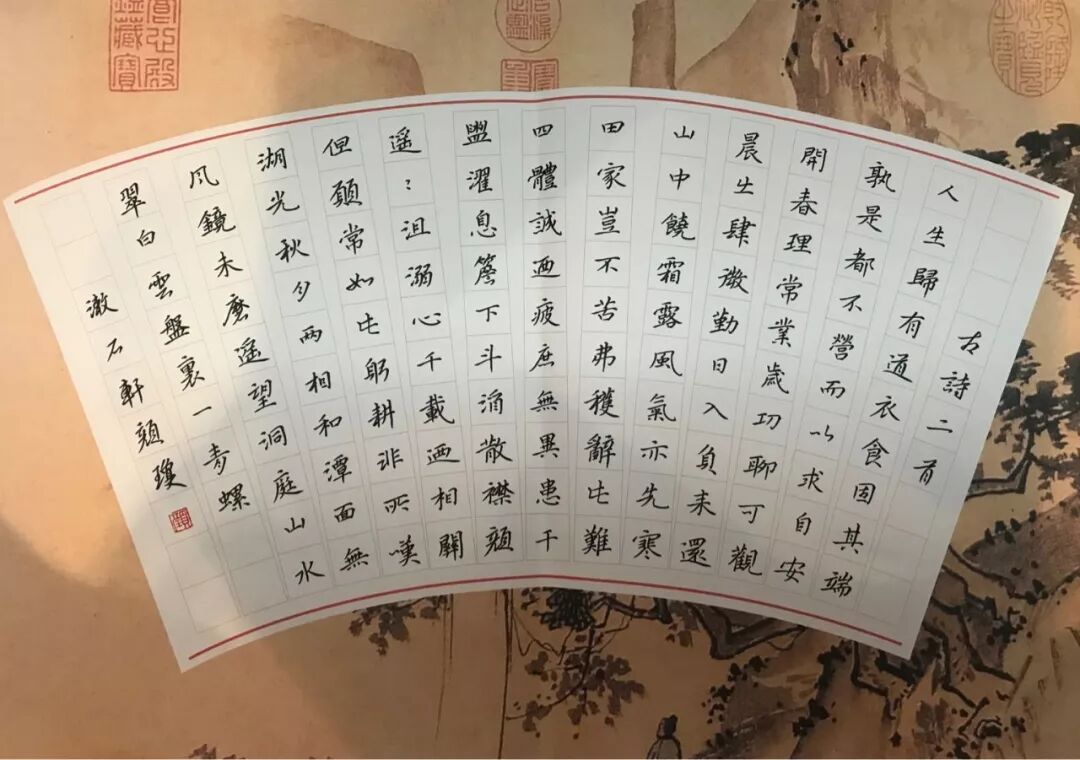 古詩二首
人生歸有道衣食固其端
孰是都不營而以求自安
開春理常業歲功聊可觀
晨出肆微勤日入負耒還
山中饒霜露風氣亦先寒
田家豈不苦弗穫辭此難
四體誠迺疲庶無異患干
盥濯息簷下斗酒散襟顏
遥:沮溺心千載迺相關
但願常如此躬耕非所嘆
湖光秋夕兩相和潭面無
风鏡未磨遥望洞庭山水
翠白雲盤裏一青螺
澈石軒顏瓊